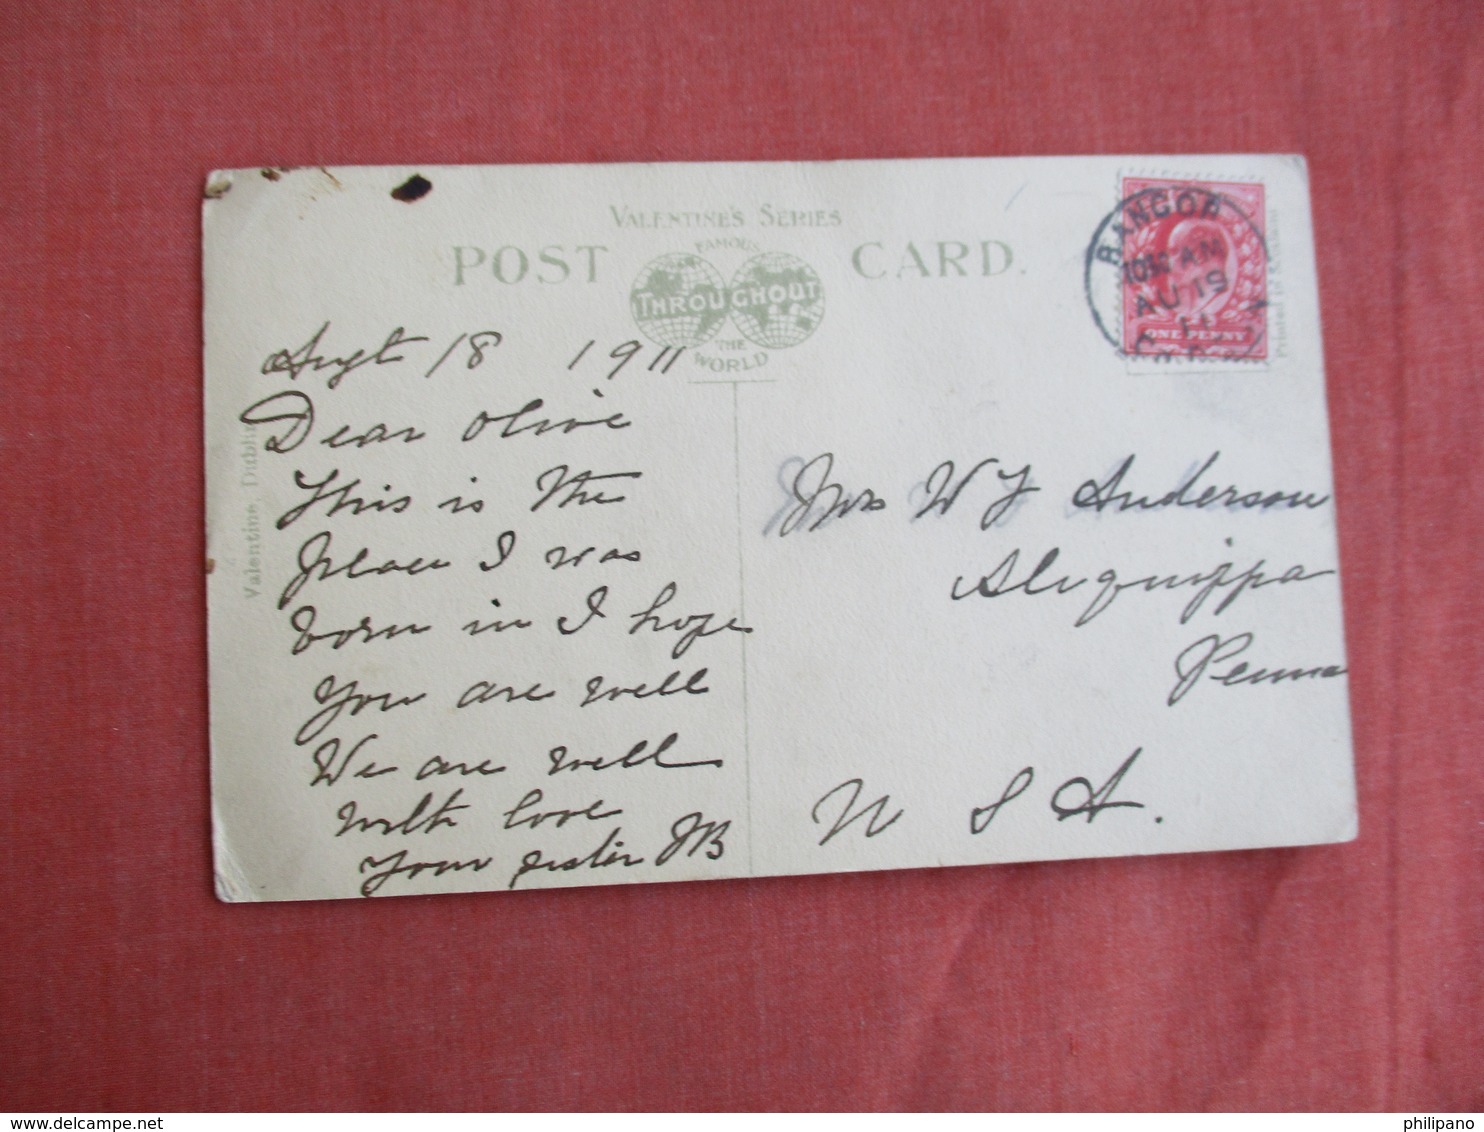 VALENTINE'S SERIES
POST CARD.
FAMOUS
THROUGHOUT
THE
WORLD
BANGOR
AM
AU 19
11
ONE PENNY
Printed in Scotland
Valentine, Dublin
Augt 18 1911
Dear Olive
This is the
place I was
born in I hope
you are well
We are well
with love
your sister JB
Mrs W J Anderson
Aliquippa
Penna
U S A.
philipano
delcampe.net